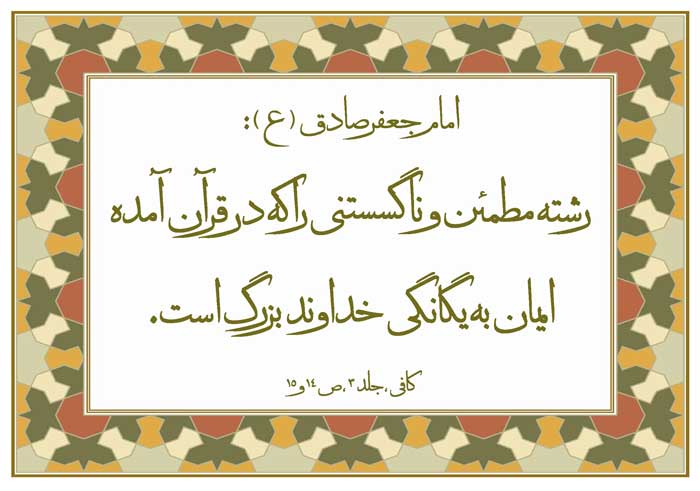 امام جعفر صادق (ع):
رشته مطمئن و ناگسستنی را که در قرآن آمده
ایمان به یگانگی خداوند بزرگ است.
کافی، جلد ۳، ص ۱۴ و ۱۵